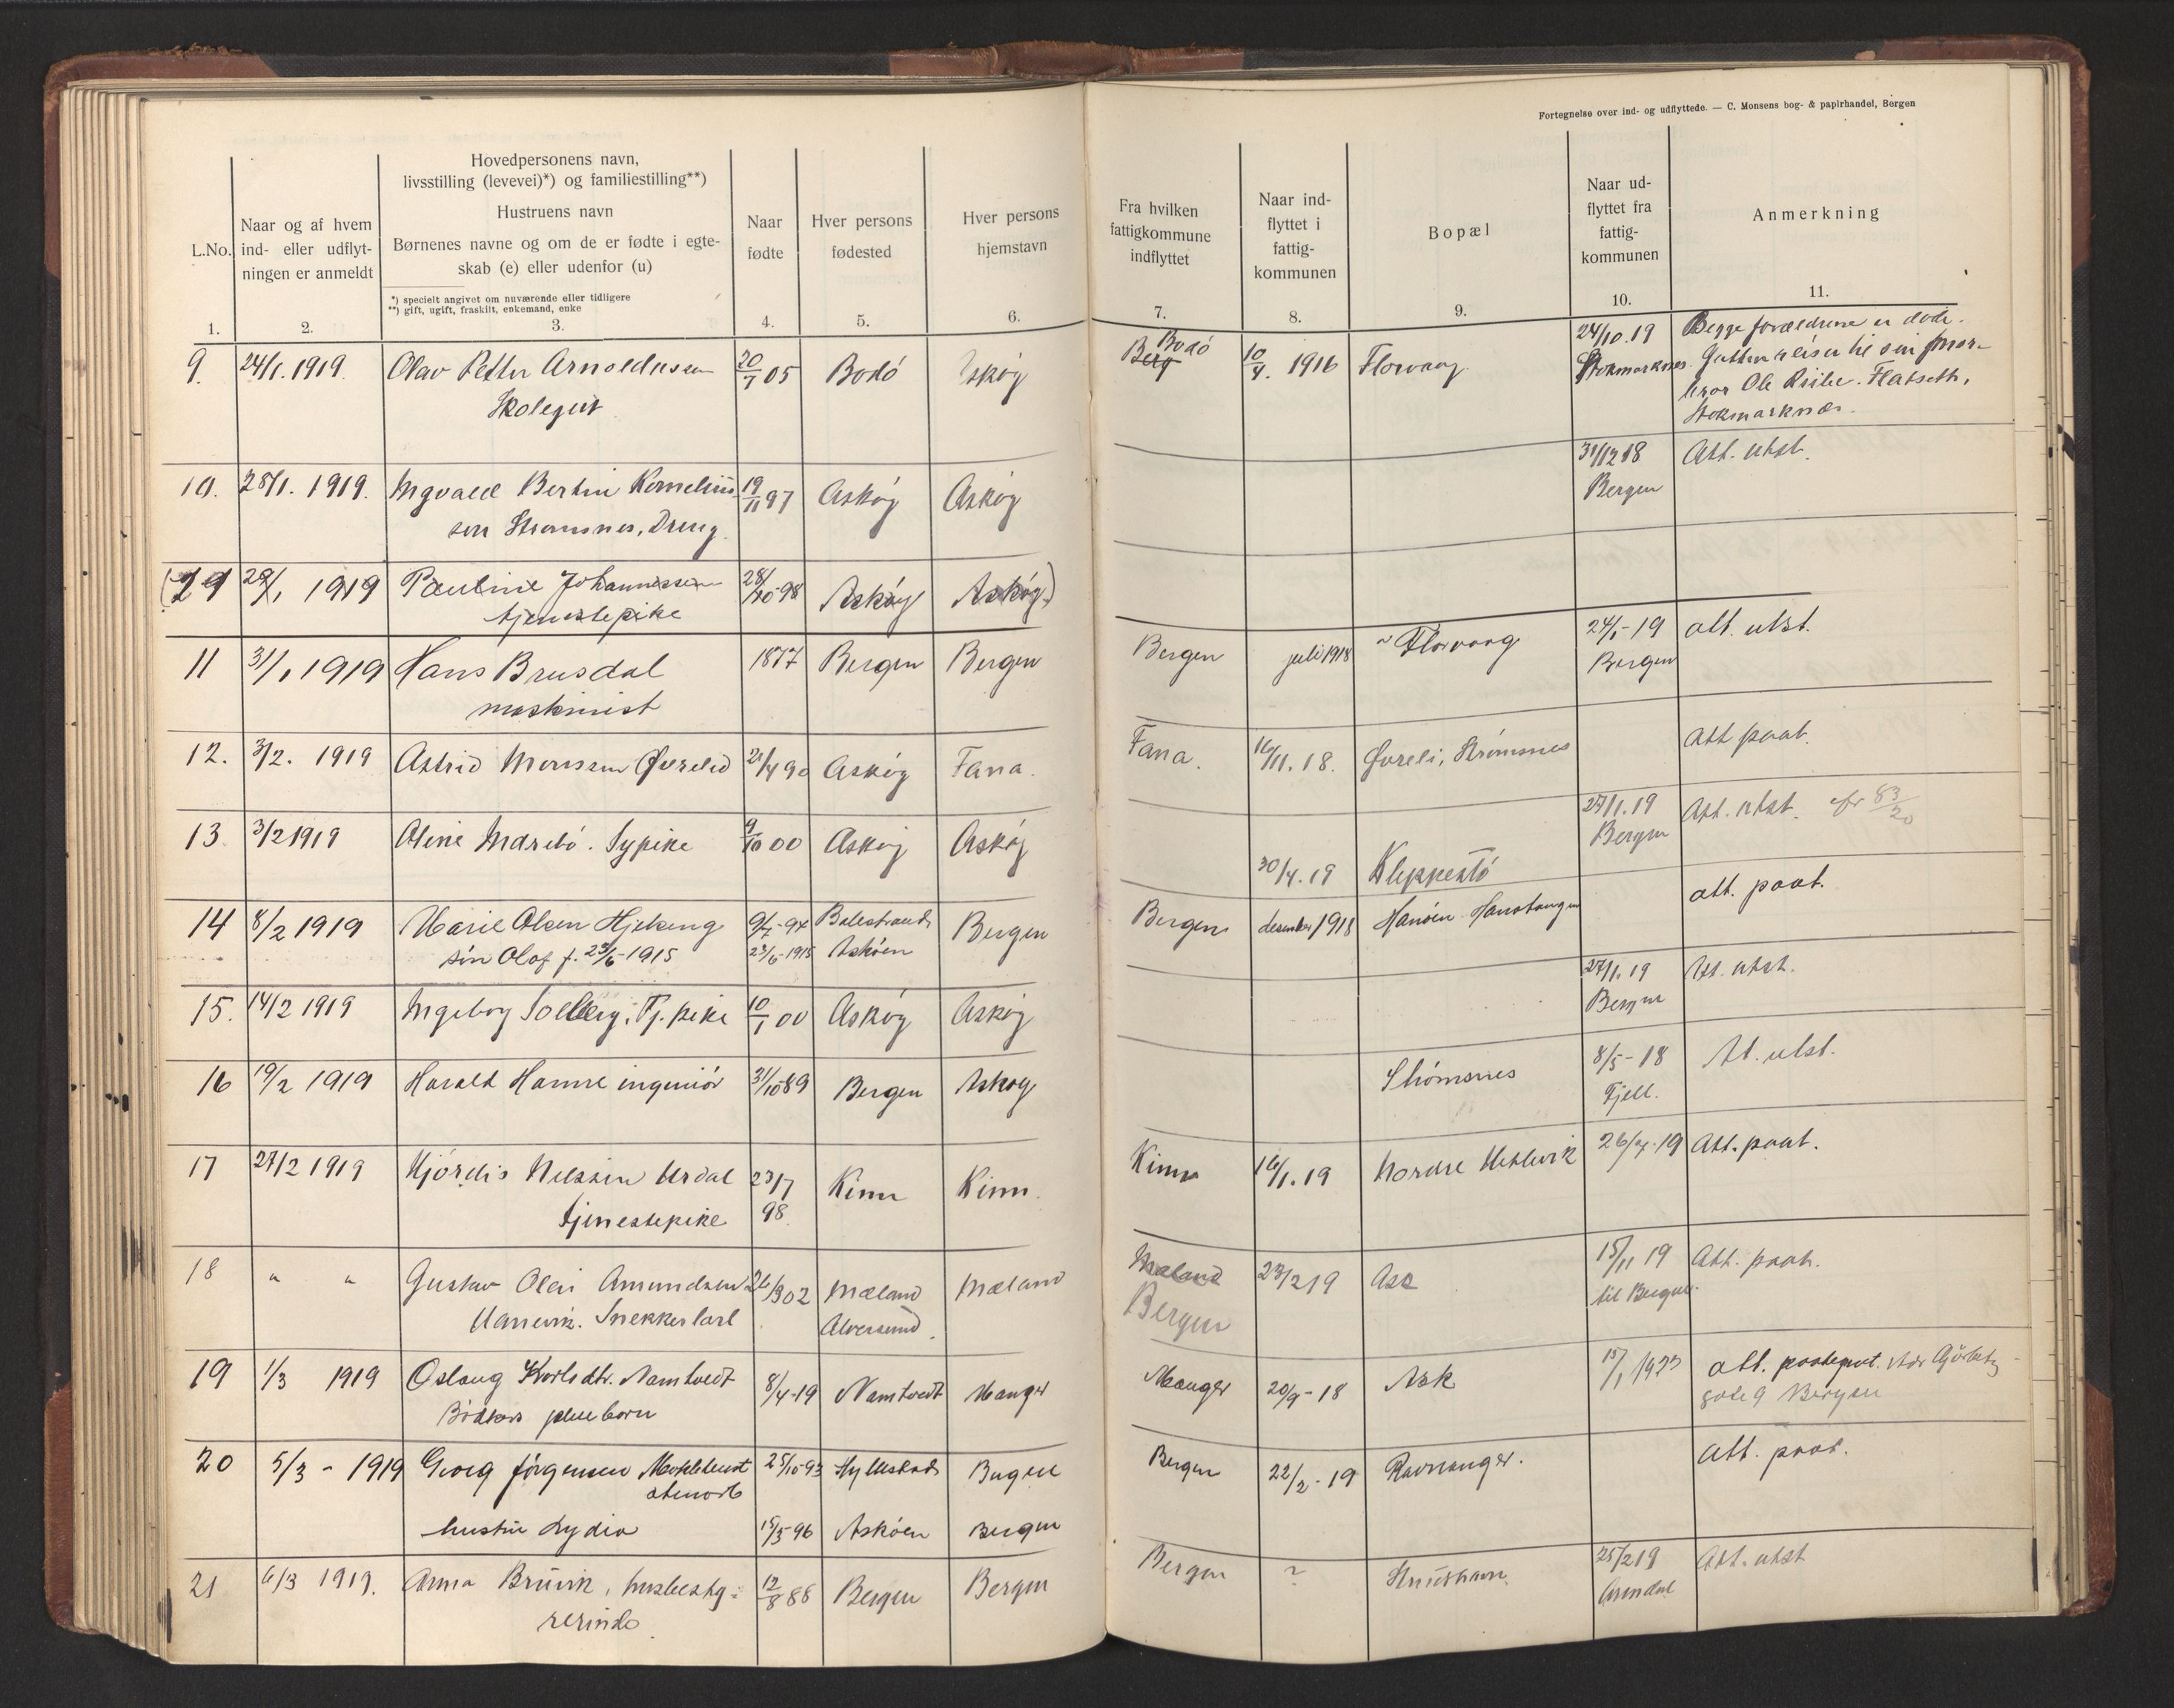 Fortegnelse over ind- og udflyttede. — C. Monsens bog- & papirhandel, Bergen
L.No.
1.
Naar og af hvem
ind- eller udflyt-
ningen er anmeldt
2.
Hovedpersonens navn,
livsstilling (levevei)*) og familiestilling**)
Hustruens navn
Børnenes navne og om de er fødte i egte-
skab (e) eller udenfor (u)
*) specielt angivet om nuværende eller tidligere
**) gift, ugift, fraskilt, enkemand, enke
3.
Naar
fødte
4.
Hver persons
fødested
5.
Hver persons
hjemstavn
6.
Fra hvilken
fattigkommune
indflyttet
7.
Naar ind-
flyttet i
fattig-
kommunen
8.
Bopæl
9.
Naar ud-
flyttet fra
fattig-
kommunen
10.
Anmerkning
11.
9. 24/1. 1919. Olav Petter Arnoldussen 20/7 05 Bodó Askøy Berg Bodó 10/4. 1916 Florvaag 24/10.19 Begge forældrene er døde.
Skolegut Stokmarknes. Gutten reiser til sin mor-
bror Ole Flatseth,
Stokmarknæs.
10. 28/1. 1919. Ingvald Bertin Kornelius 19/11 97 Askøy Askøy 31/12 18 Att. utst.
sen Stromsnes, Dreng Bergen
(29 29/1 1919 Pauline Johannessen 28/10-98 Askøy Askøy)
tjenestepike
11 31/1 1919 Hans Brusdal 1877 Bergen Bergen Bergen juli 1918 Florvaag 24/1-19 att. utst.
maskinist Bergen
12. 3/2. 1919 Astrid Monssen Øvrelid 21/4 90 Askøy Fana. Fana. 16/11.18. Øvreli, Strømsnes Att paat.
13. 3/2 1919 Oline Indrebó. Sypike 9/10 00 Askøy Askøy 27/1.19 Att. utst. cfr 83/20
Bergen
30/4.19 Kleppestó
14 8/2 1919 Marie Olsen 9/7-94 Balestrand Bergen Bergen desember 1918 Hanöen Hanotangen att. paat.
sön Olaf f. 23/6-1915 23/6-1915 Asköen
15. 14/2 1919 Ingeborg Solberg, Tj. pike 10/1 00 Askøy Askøy 27/1.19 Att. utst.
Bergen
16 19/2 1919 Harald Hamre ingeniör 31/10 89 Bergen Askøy Strömsnes 8/5-18 At. utst.
Fjell.
17 27/2 1919 Hjördis Nilssen Urdal 23/7 Kinn Kinn. Kinn 16/1.19 Nordre Hetlevik 26/4.19 Att. paat.
tjenestepike 98.
18 " " Gustav Olai Amundsen 26/9 02 Mæland Mæland Mæland 23/2 19 Ask 15/11 19 Att. paat.
Snekkerlærl Alversund. Bergen til Bergen.
19 1/3 1919 Oslaug Karlsdtr. Namtvedt 8/4-19 Namtvedt Manger Manger 20/9-18 Ask 15/1 1923 att. paategnet.
pleiebarn gate 9 Bergen
20 5/3 - 1919 Georg Jörgensen Myklebust 25/10-93 Hyllestad Bergen Bergen 22/2-19 Ravnanger. att. paat.
hustru Lydia 15/5-96 Asköen Bergen
21 6/3 1919. Anna Brüvik, husbesty= 12/8 88 Bergen Bergen Bergen ? 25/2 19 Att. utst
rerinde Arendal